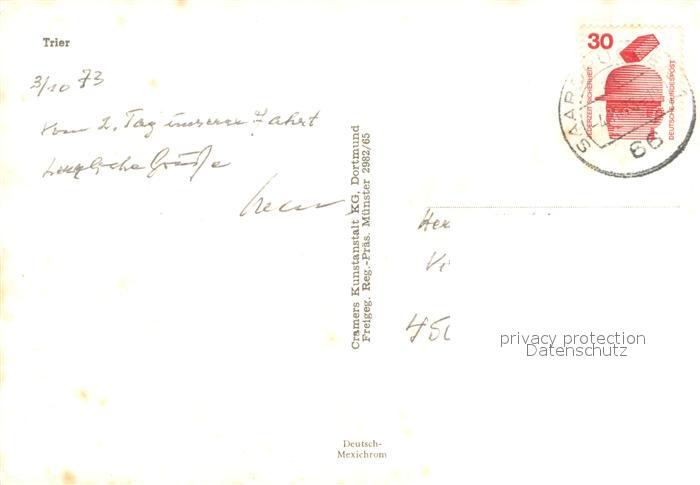 Trier
3/10 73
vom 2. Tag unserer Fahrt
herzliche Grüße
Cramers Kunstanstalt KG, Dortmund
Freigeg. Reg.-Präs. Münster 2982/65
Deutsch-
Mexichrom
30
JEDERZEIT SICHERHEIT
DEUTSCHE BUNDESPOST
66
Her
Vi
450
privacy protection
Datenschutz